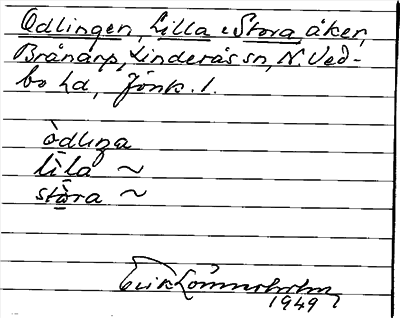 Odlingen, Lilla o Stora, åker,
Brånarp, Linderås sn, N. Ved-
bo hd, Jönk. l.
òdlıŋa
lìla ~
stòra ~
Erik Lönnerholm
1949